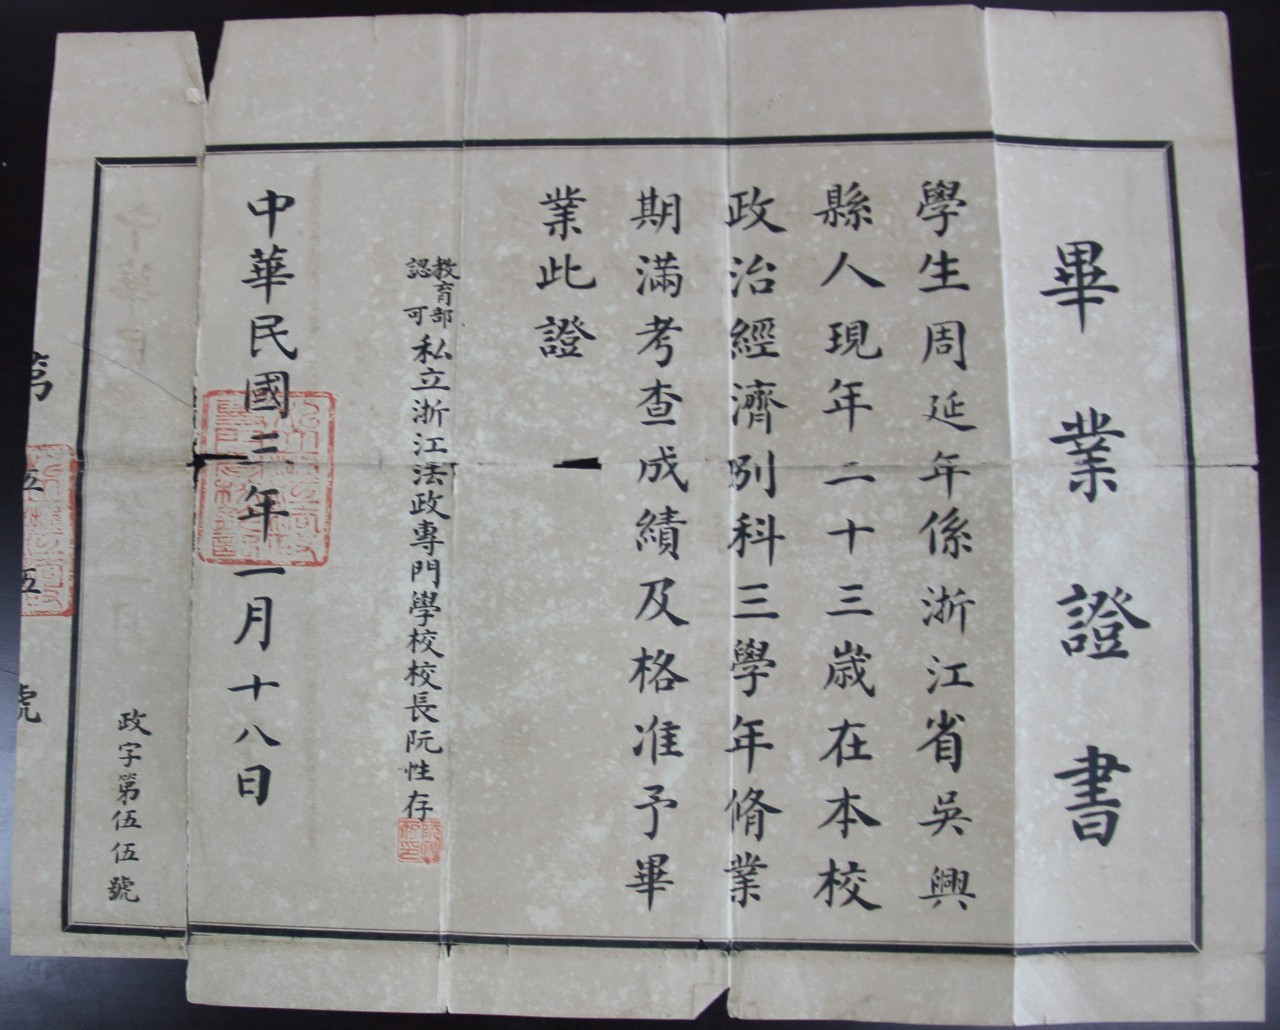 畢業證書
學生周延年係浙江省吳興
縣人現年二十三歲在本校
政治經濟別科三學年脩業
期滿考查成績及格准予畢
業此證
教育部
認可
私立浙江法政專門學校校長阮性存
中華民國三年一月十八日
政字第伍伍號
第伍伍號